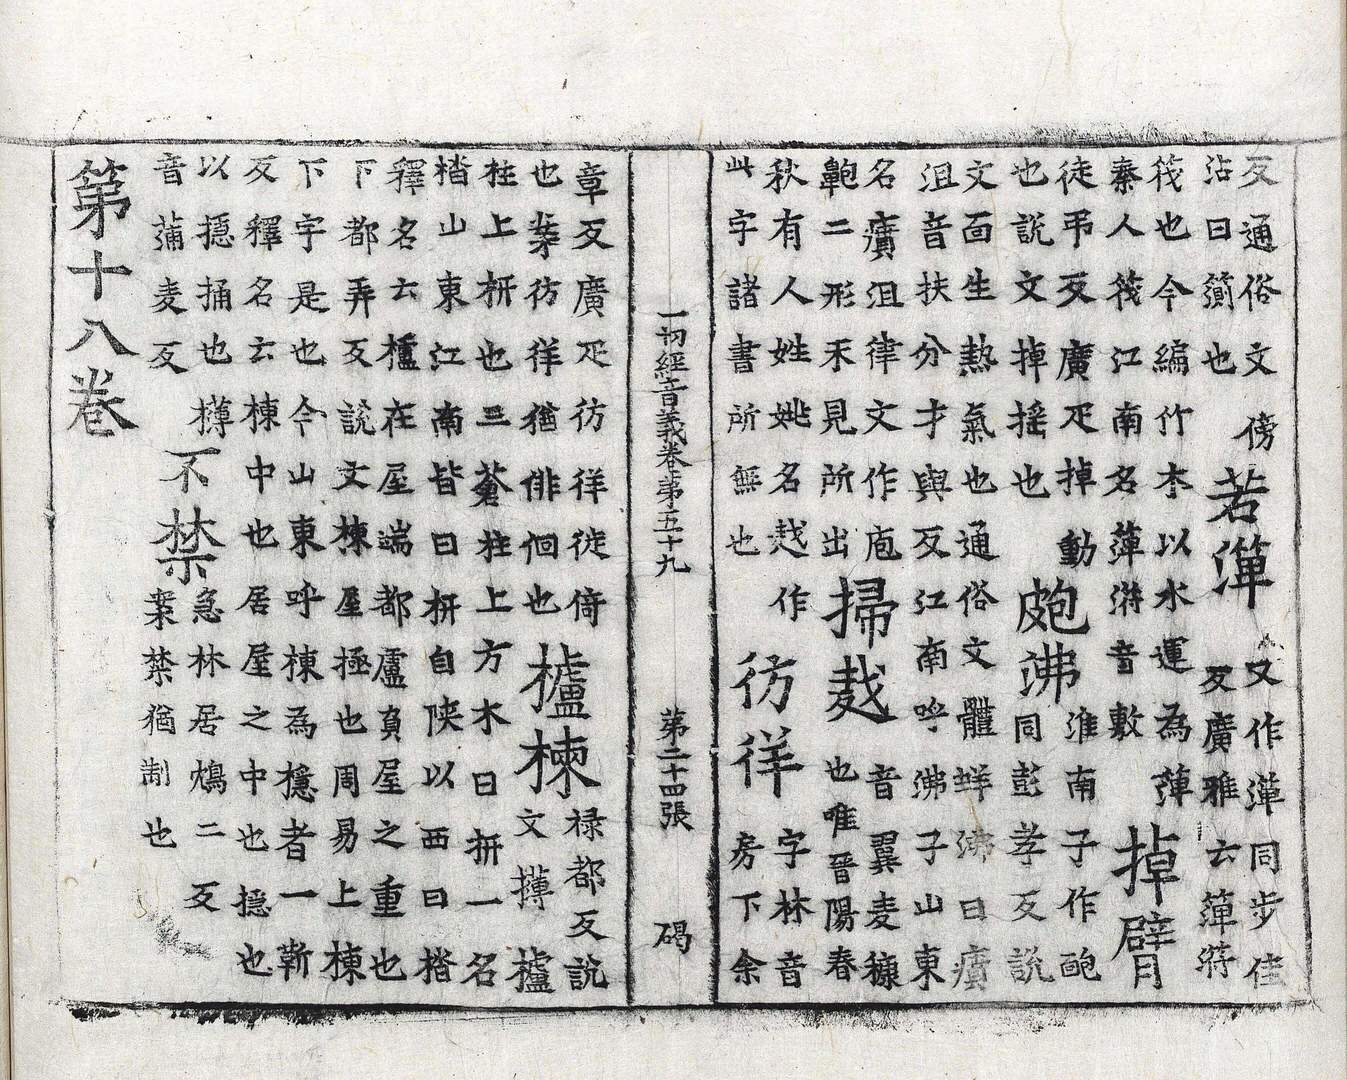 反通俗文傍
沾曰篺也
若簰
又作簰同步佳
反廣雅云簰
筏也今編竹木以水運為簰
秦人筏江南名簰音敷
掉臂
徒弔反廣疋掉動
也說文掉搖也
皰沸
淮南子作皰
同彭孝反說
文面生熱氣也通俗文體蛘沸曰癀
沮音扶分才與反江南呼沸子山東
名癀沮律文作庖
皰二形未見所出
掃𧻚
音翼麦䅽
也唯晉陽春
秋有人姓姚名𧻚作
此字諸書所無也
彷徉
字林音
房下余
一切經音義卷第五十九 第二十四張 碣
章反廣疋彷徉徙倚
也案彷徉猶俳佪也
櫨棟
祿都反說
文欂櫨
柱上枅也三蒼柱上方木曰枅一名
楷山東江南皆曰枅自陝以西曰楷
釋名云櫨在屋端都盧負屋之重也
下都弄反說文棟屋極也周易上棟
下字是也今山東呼棟為檼者一靳
反釋名云棟中也居屋之中也檼也
以檼捅也欂
音蒲麦反
不禁
急林居鴆二反
案禁猶制也
第十八卷